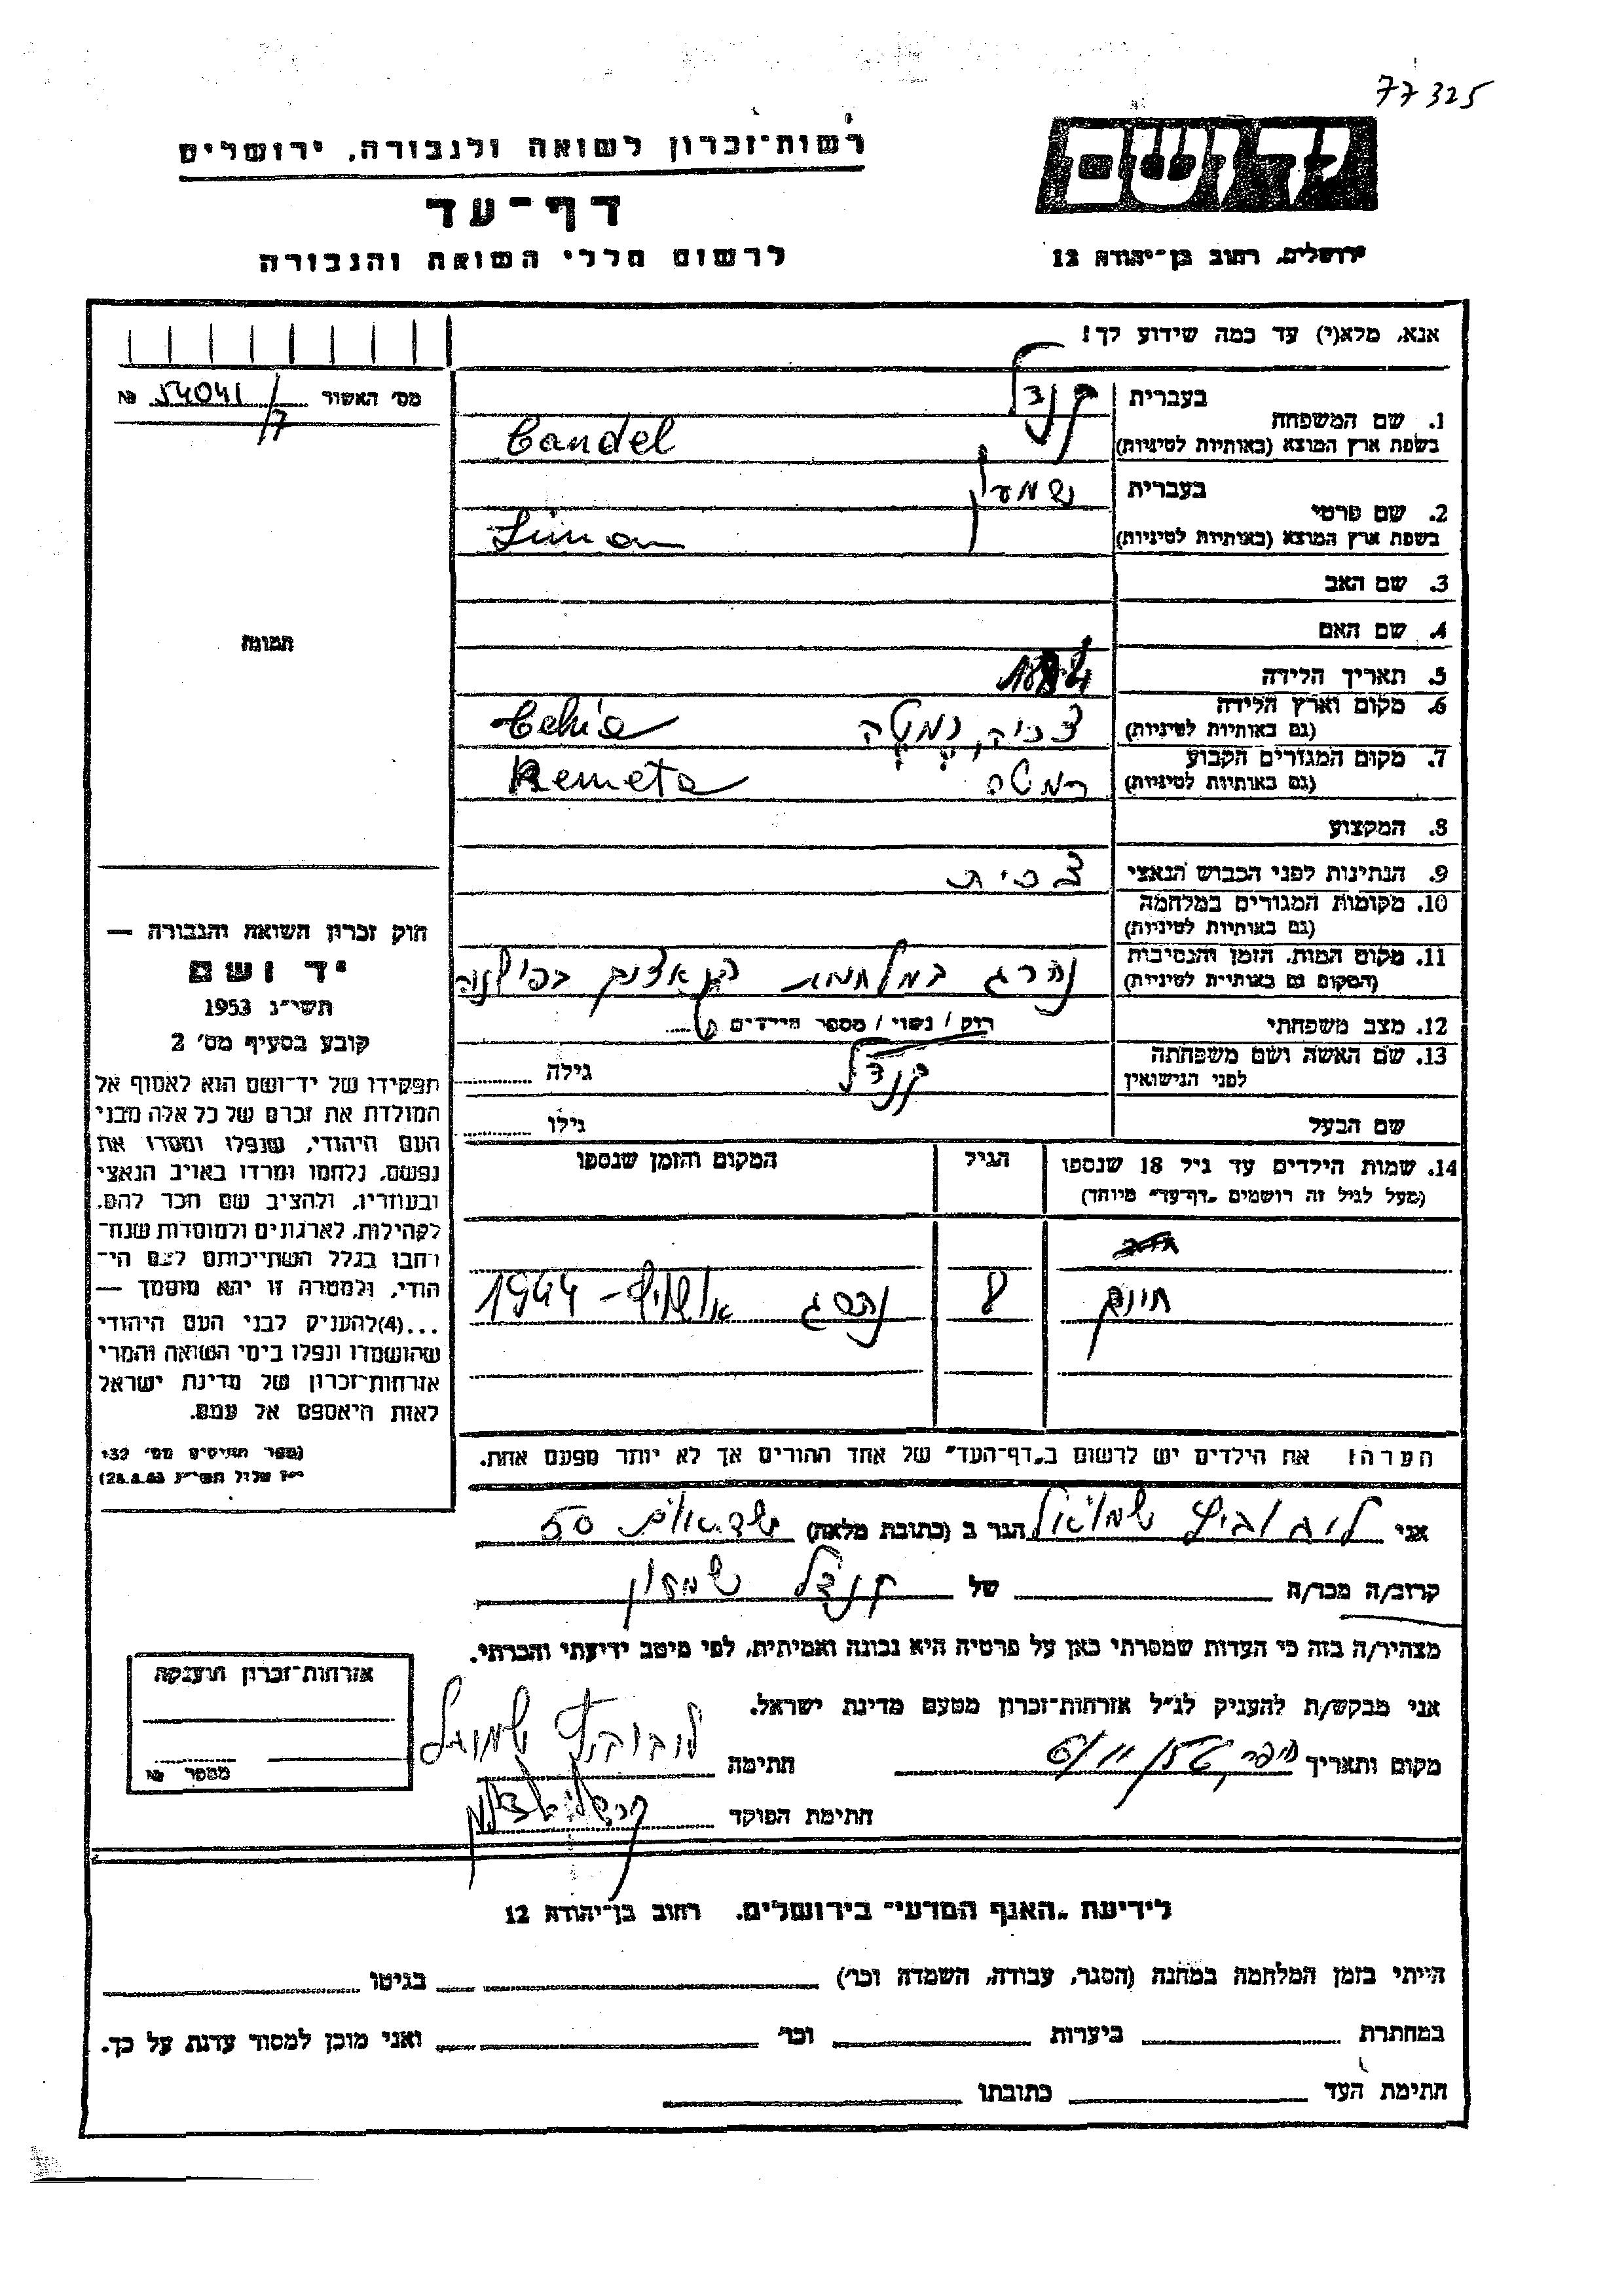 77325
רשות־זכרון לשואה ולגבורה, ירושלים
יד ושם
דף־עד
לרשום חללי השואה והגבורה
ירושלים, רחוב בן־יהודה 12
אנא, מלא(י) עד כמה שידוע לך!
מס' האשור 54041/7 №
1. שם המשפחה
בעברית קנדל
בשפת ארץ המוצא (באותיות לטיניות) Candel
2. שם פרטי
בעברית שמעון
בשפת ארץ המוצא (באותיות לטיניות) Simon
3. שם האב
4. שם האם
תמונה
5. תאריך הלידה
6. מקום וארץ הלידה צכיה, רמטה Cehia
(גם באותיות לטיניות)
7. מקום המגורים הקבוע רמטה Remeta
(גם באותיות לטיניות)
8. המקצוע
9. הנתינות לפני הכבוש הנאצי צכית
10. מקומות המגורים במלחמה
(גם באותיות לטיניות)
11. מקום המות, הזמן והנסיבות נהרג במלחמת
(המקום גם באותיות לטיניות)
12. מצב משפחתי רווק / נשוי / מספר הילדים
13. שם האשה ושם משפחתה קנדל גילה
לפני הנישואין
שם הבעל גילו
14. שמות הילדים עד גיל 18 שנספו הגיל המקום והזמן שנספו
(מעל לגיל זה רושמים "דף־עד" מיוחד)
8 נהרג אושויץ - 1944
הערה: את הילדים יש לרשום ב"דף־העד" של אחד ההורים אך לא יותר מפעם אחת.
חוק זכרון השואה והגבורה —
יד ושם
תשי"ג 1953
קובע בסעיף מס' 2
תפקידו של יד־ושם הוא לאסוף אל
המולדת את זכרם של כל אלה מבני
העם היהודי, שנפלו ומסרו את
נפשם, נלחמו ומרדו באויב הנאצי
ובעוזריו, ולהציב שם וזכר להם,
לקהילות, לארגונים ולמוסדות שנח־
רבו בגלל השתייכותם לעם הי־
הודי, ולמטרה זו יהא מוסמך —
...(4) להעניק לבני העם היהודי
שהושמדו ונפלו בימי השואה והמרי
אזרחות־זכרון של מדינת ישראל
לאות היאספם אל עמם.
(ספר החוקים מס' 132
י"ז אלול תשי"ג 28.8.53)
אני ליבוביץ שמואל הגר ב (כתובת מלאה) 50
קרוב/ה מכר/ה של קנדל שמעון
מצהיר/ה בזה כי העדות שמסרתי כאן על פרטיה היא נכונה ואמיתית, לפי מיטב ידיעתי והכרתי.
אני מבקש/ת להעניק לנ"ל אזרחות־זכרון מטעם מדינת ישראל.
מקום ותאריך חתימה ליבוביץ שמואל
חתימת הפוקד
אזרחות־זכרון הוענקה
מספר №
לידיעת "האגף המדעי" בירושלים, רחוב בן־יהודה 12
הייתי בזמן המלחמה במחנה (הסגר, עבודה, השמדה וכו') בגיטו
במחתרת ביערות וכו' ואני מוכן למסור עדות על כך.
חתימת העד כתובתו